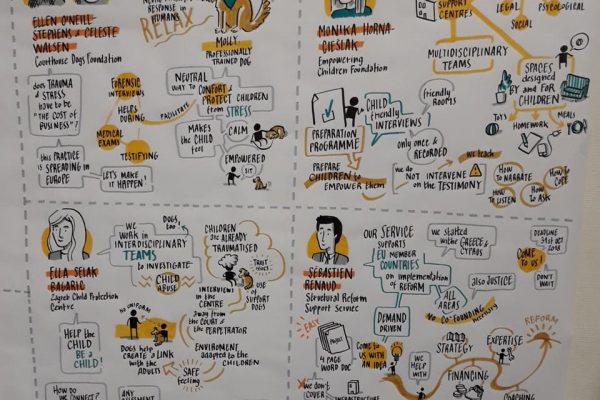 ELLEN O'NEILL-
STEPHENS & CELESTE
WALSEN
Courthouse Dogs Foundation
RESPONSE IN
HUMANS
RELAX
MOLLY
PROFESSIONALLY
TRAINED DOG
does TRAUMA
& STRESS
have to be
"THE COST of
BUSINESS"?
this PRACTICE
is SPREADING in
EUROPE
LET'S MAKE it
HAPPEN!
FORENSIC
INTERVIEWS
HELPS
DURING
MEDICAL
EXAMS
TESTIFYING
FACILITATE
NEUTRAL
WAY to
COMFORT &
PROTECT CHILDREN
from STRESS
MAKES
the CHILD
feel
CALM
EMPOWERED
SIT
MONIKA HORNA-
CIEŚLAK
Empowering
Children Foundation
SUPPORT
CENTRES
LEGAL
SOCIAL
MULTIDISCIPLINARY
TEAMS
SPACES
designed
BY and FOR
CHILDREN
TOYS
HOMEWORK
MEALS
PREPARATION
PROGRAMME
CHILD
friendly
INTERVIEWS
friendly
ROOMS
only once &
RECORDED
PREPARE
CHILDREN to
EMPOWER them
we do NOT INTERVENE
on the TESTIMONY
we teach
HOW to
NARRATE
HOW to
COPE
HOW
to LISTEN
HOW
to ASK
ELLA SELAK
BAGARIĆ
Zagreb Child Protection
Centre
HELP the
CHILD
BE a
CHILD!
WE
WORK in
INTERDISCIPLINARY
TEAMS
to INVESTIGATE
CHILD
ABUSE
DOGS
too!
CHILDREN
are ALREADY
TRAUMATISED
TRUST
ISSUES
USE
of
SUPPORT
DOGS
INTERVIEWS
in the
CENTRE
away from
the COURT &
the PERPETRATOR
NO UNIFORM
DOGS help
CREATE a LINK
with the
ADULTS
ENVIRONMENT
adapted to the
CHILDREN
SAFE
feeling
HOW do
we CONNECT?
ANY
SÉBASTIEN
RENAUD
Structural Reform
Support Service
OUR SERVICE
supports
EU MEMBER
COUNTRIES
on implementation
of REFORM
DEMAND
DRIVEN
we started
with GREECE &
CYPRUS
also JUSTICE
ALL
AREAS
NO CO-FOUNDING
necessary
DEADLINE
31st OCT
2018
COME
to US
DON'T
WAIT
EASY
PROJECT
4 PAGE
WORD DOC
COME to
US WITH
AN IDEA
WE
HELP
WITH
STRATEGY
EXPERTISE
REFORM
FINANCING
COACHING
we don't
COVER
INFRASTRUCTURE